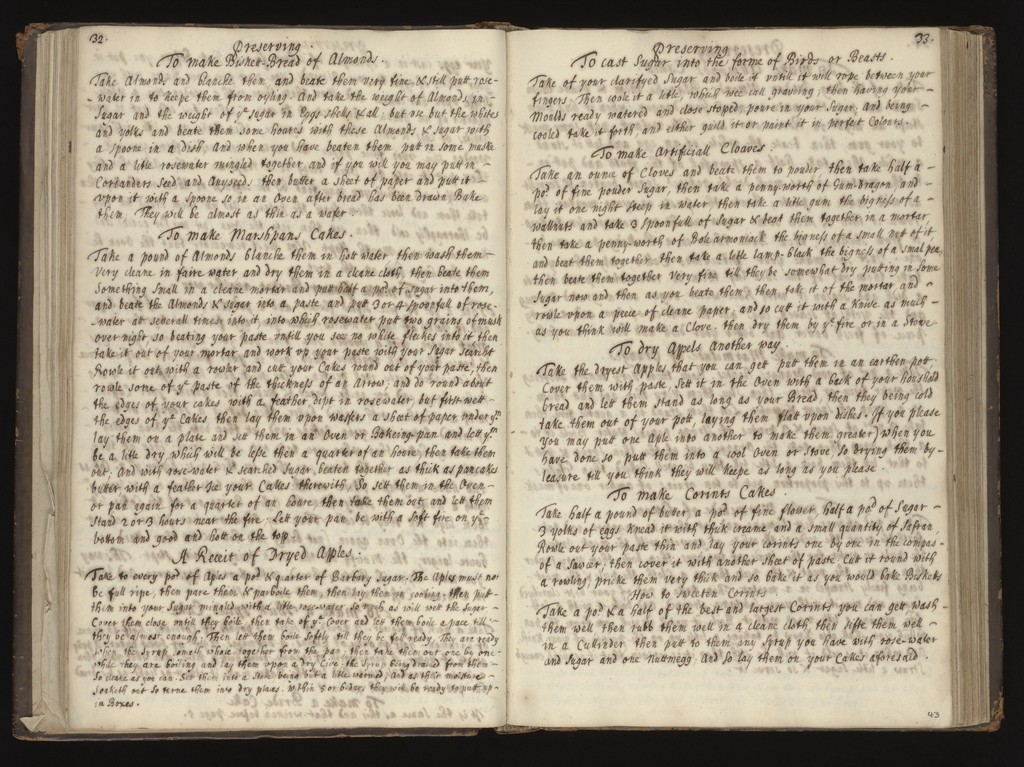 32.
Preserving.
To make Bisket-Bread of Almonds.
Take Almonds and blanche them and beate them very fine, & still putt rose-
-water in to keepe them from oyling. And take the weight of Almonds in
Sugar and the weight of yͤ sugar in Eggs shells & all; but use but the whites
and yolks and beate them some houres with these Almonds & sugar with
a spoone in a dish. And when you have beaten them putt in some muske
and a litle rosewater mingled together and if you will you may putt in
Corianders Seed and Anyseeds, then butter a sheet of paper and putt it
upon it with a spoone, so in an Oven after bread has been drawn Bake
them. They will be almost as thin as a wafer.
To make Marshpans Cakes.
Take a pound of Almonds blanche them in hott water then wash them
very cleane in faire water and dry them in a cleane cloth, then beate them
Something small in a cleane mortar and putt half a poᵈ of Sugar into them,
and beate the Almonds & Sugar into a paste and putt 3 or 4 spoonfull of rose-
-water at severall times into it, into which rosewater putt two grains of musk
over night, so beating your paste untill you see no white fleckes into it then
take it out of your mortar and work up your paste with your Sugar Searcht
Rowle it out with a rowler and cutt your Cakes round out of your paste, then
rowle some of yͤ paste of the thickness of an Arrow; and do round about
the edges of your cakes with a feather dipt in rosewater but first wett
the edges of yͤ Cakes then lay them upon wafers a sheet of paper under yᵐ
lay them on a plate and sett them in an Oven or Bakeing-pan and lett yᵐ
be a litle dry which will be lesse then a quarter of an hoore, then take them
out. And with rose-water & searched Sugar beaten together as thick as pancakes
butter with a feather Ice your Cakes therewith. So sett them in the Oven
or pan again for a quarter of an houre, then take them out, and lett them
Stand 2 or 3 hours near the fire: Lett your pan be with a soft fire on yͤ
bottom and good and hott on the top.
A Receit of Dryed Apples.
Take to every poᵈ of Aples a poᵈ & quarter of Barbery Sugar. The Aples must not
be full ripe, then pare them & parboile them, then lay them in cooling. Then putt
them into your Sugar mingled with a litle rose-water so much as will wett the Sugar
Cover them close untill they boile, then take of yͤ Cover and lett them boile a pace till
they be almost enough. Then lett them boile softly till they be full ready. They are ready
when the syrup cometh whole together from the pan; then take them out one by one
while they are boiling and lay them upon a dry Cive, the Syrup being drained from them
So cleane as you can. Sett them into a Stove being but a litle warmed, And as their moisture
soaketh out so turne them into dry plates. Within 5 or 6 dayes they will be ready to putt up
in Boxes.
33.
Preserving
To cast Sugar into the forme of Birds or Beasts.
Take of your clarifyed Sugar and boile it untill it will rope between your
fingers: Then coole it a litle, which wee call graining; then having your
Moulds ready watered and close stoped, poure in your Sugar, and being
cooled take it forth, and either guild it or paint it in perfect Colours.
To make Artificiall Cloaves.
Take an ounce of Cloves and beate them to pouder, then take half a
poᵈ of fine pouder Sugar, then take a penny-worth of Gum-dragon and
lay it one night steep in water, then take a litle gum the bigness of a
wallnutt and take 3 Spoonfull of Sugar & beat them together in a mortar,
then take a penny-worth of Bole-armoniack the bigness of a small nut of it,
and beat them together, then take a litle lamp-black the bigness of a smal pea,
then beate them together very fine till they be somewhat dry, putting in some
Sugar now and then as you beate them, then take it of the mortar and
rowle upon a peece of cleane paper, and so cutt it with a Knife as much
as you think will make a Clove, then dry them by yͤ fire or in a Stove
To dry Appels Another way.
Take the dryest Apples that you can gett putt them in an earthen pott,
Cover them with paste, sett it in the Oven with a bach of your houshold
bread and lett them stand as long as your Bread, then they being cold
take them out of your pott, laying them flatt upon dishes. (If you please
you may putt one Aple into another to make them greater) when you
have done so putt them into a cool Oven or Stove, so drying them by
leasure till you think they will keepe as long as you please.
To make Corints Cakes.
Take half a pound of butter a poᵈ of fine flower, half a poᵈ of Sugar
3 yolks of eggs Knead it with thick creame and a small quantity of Safran
Rowle out your paste thin and lay your corints one by one in the compas
of a Sawcer, then cover it with another sheet of paste. Cut it round with
a rowling, pricke them very thick and so bake it as you would bake Biskets
How to sweeten Corints
Take a poᵈ & a half of the best and largest Corints you can gett wash
them well then rubb them well in a cleane cloth then sifte them well
in a Cullinder then putt to them any Syrup you have with rose-water
and Sugar and one nuttmegg. And So lay them on your Cakes aforesaid.
43